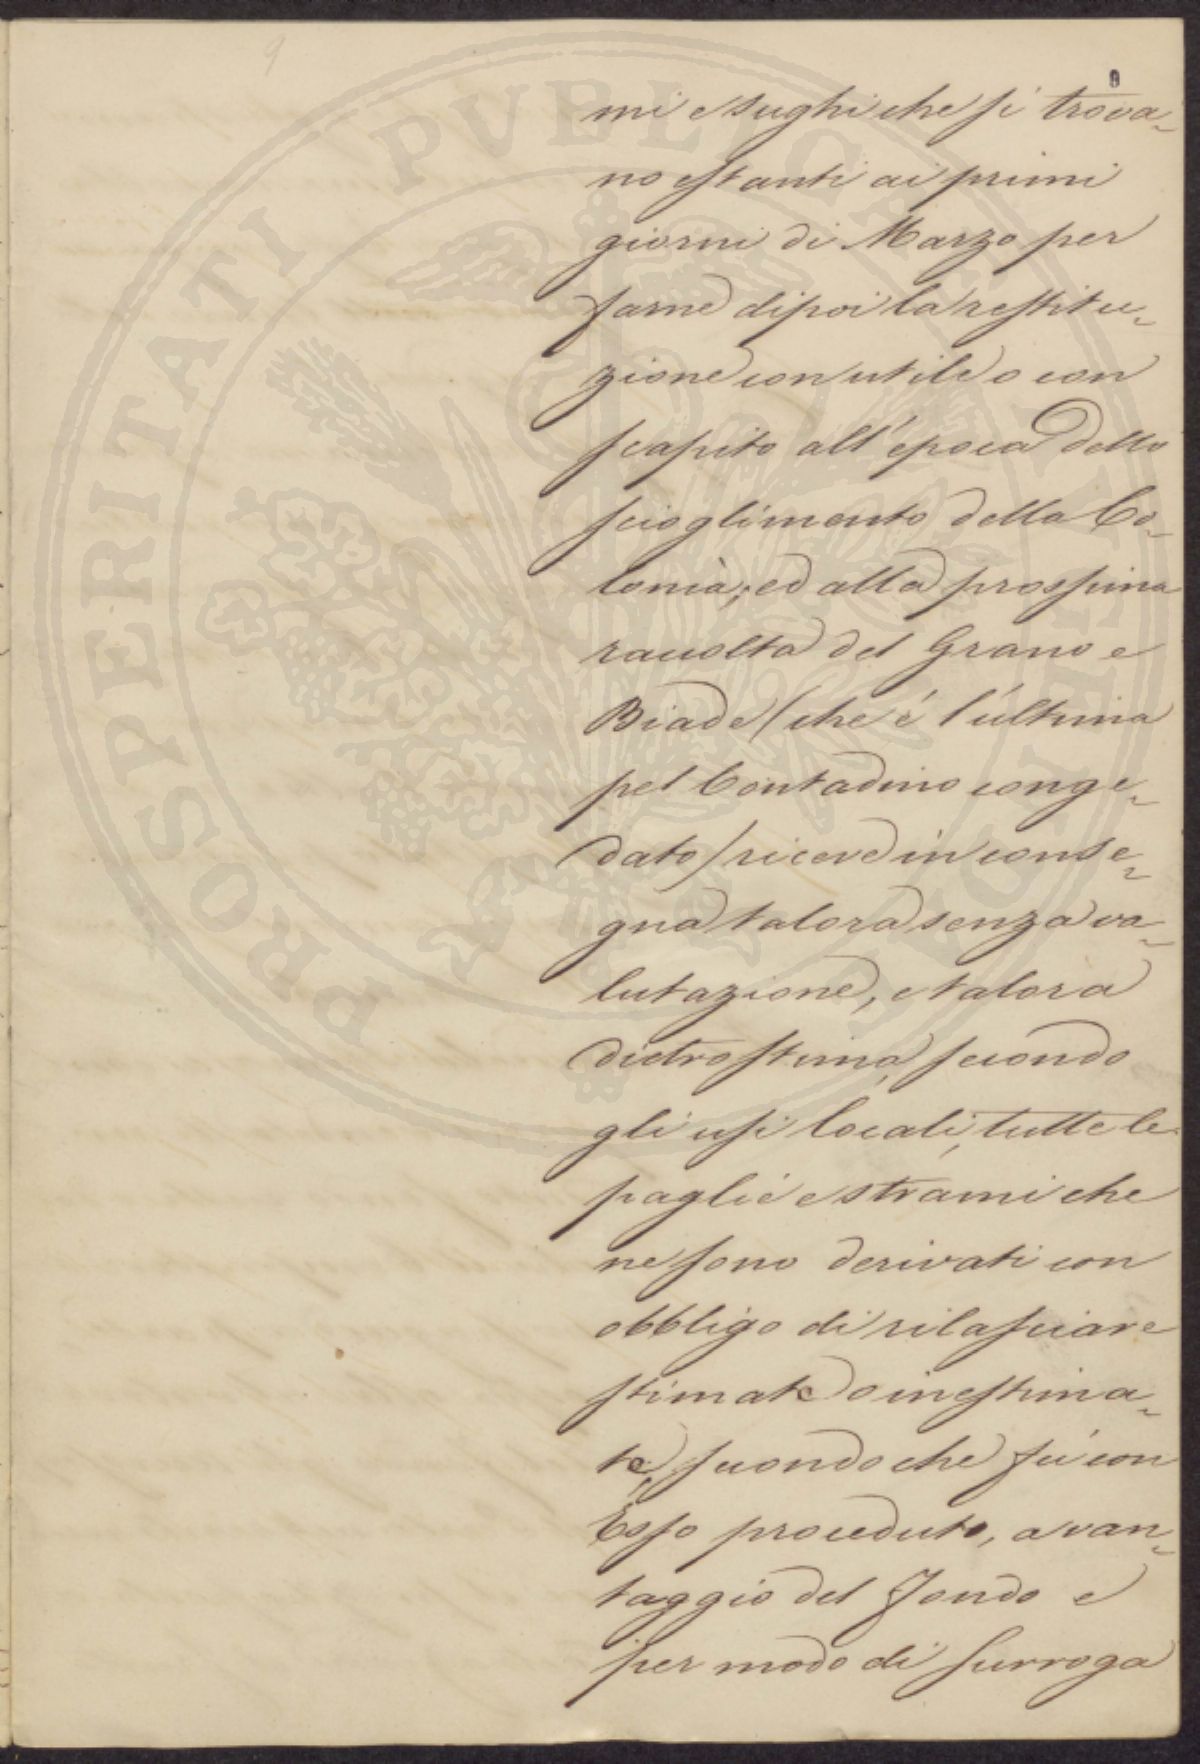 9
9
mi e sughi che si trova-
no estanti ai primi
giorni di Marzo per
farne dipoi la restitu-
zione con utile o con
scapito all'epoca dello
scioglimento della Co-
lonia; ed alla prossima
raccolta del Grano e
Biade (che é l'ultima
pel Contadino conge-
dato) riceve in conse-
gna talora senza va-
lutazione, e talora
dietro stima, secondo
gli usi locali, tutte le
paglie e strami che
ne sono derivati con
obbligo di rilasciare
stimate o inestima-
te, secondo che fú con
Esso proceduto, a van-
taggio del Fondo e
per modo di surroga
PROSPERITATI PVBLICAE